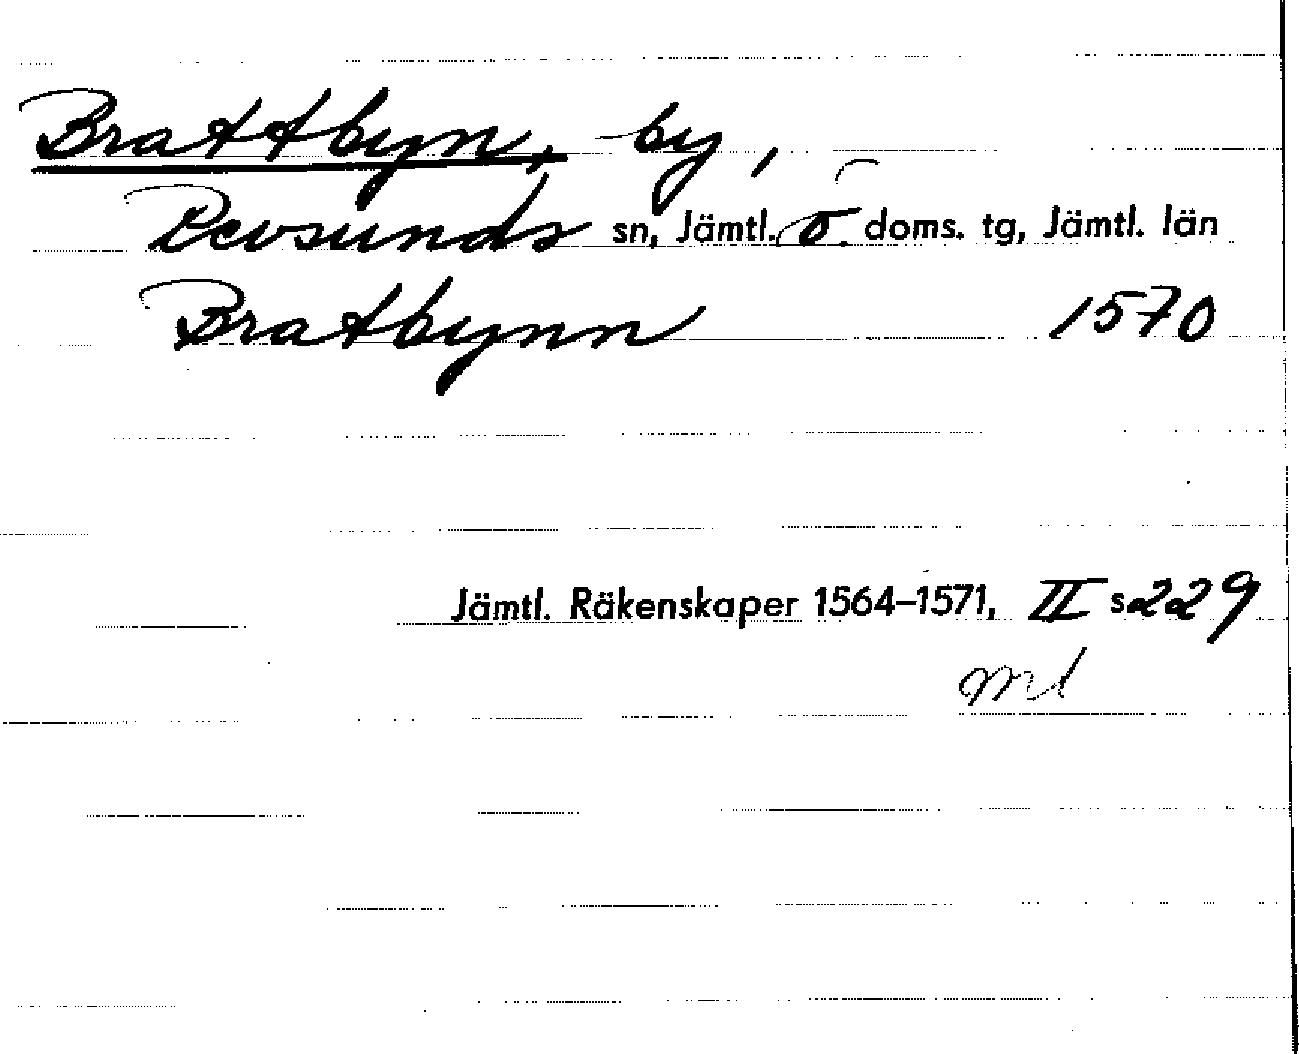 Brattbyn, by,
Revsunds sn, Jämtl. ö. doms. tg, Jämtl. län
Bratbynn 1570
Jämtl. Räkenskaper 1564–1571, II s 229